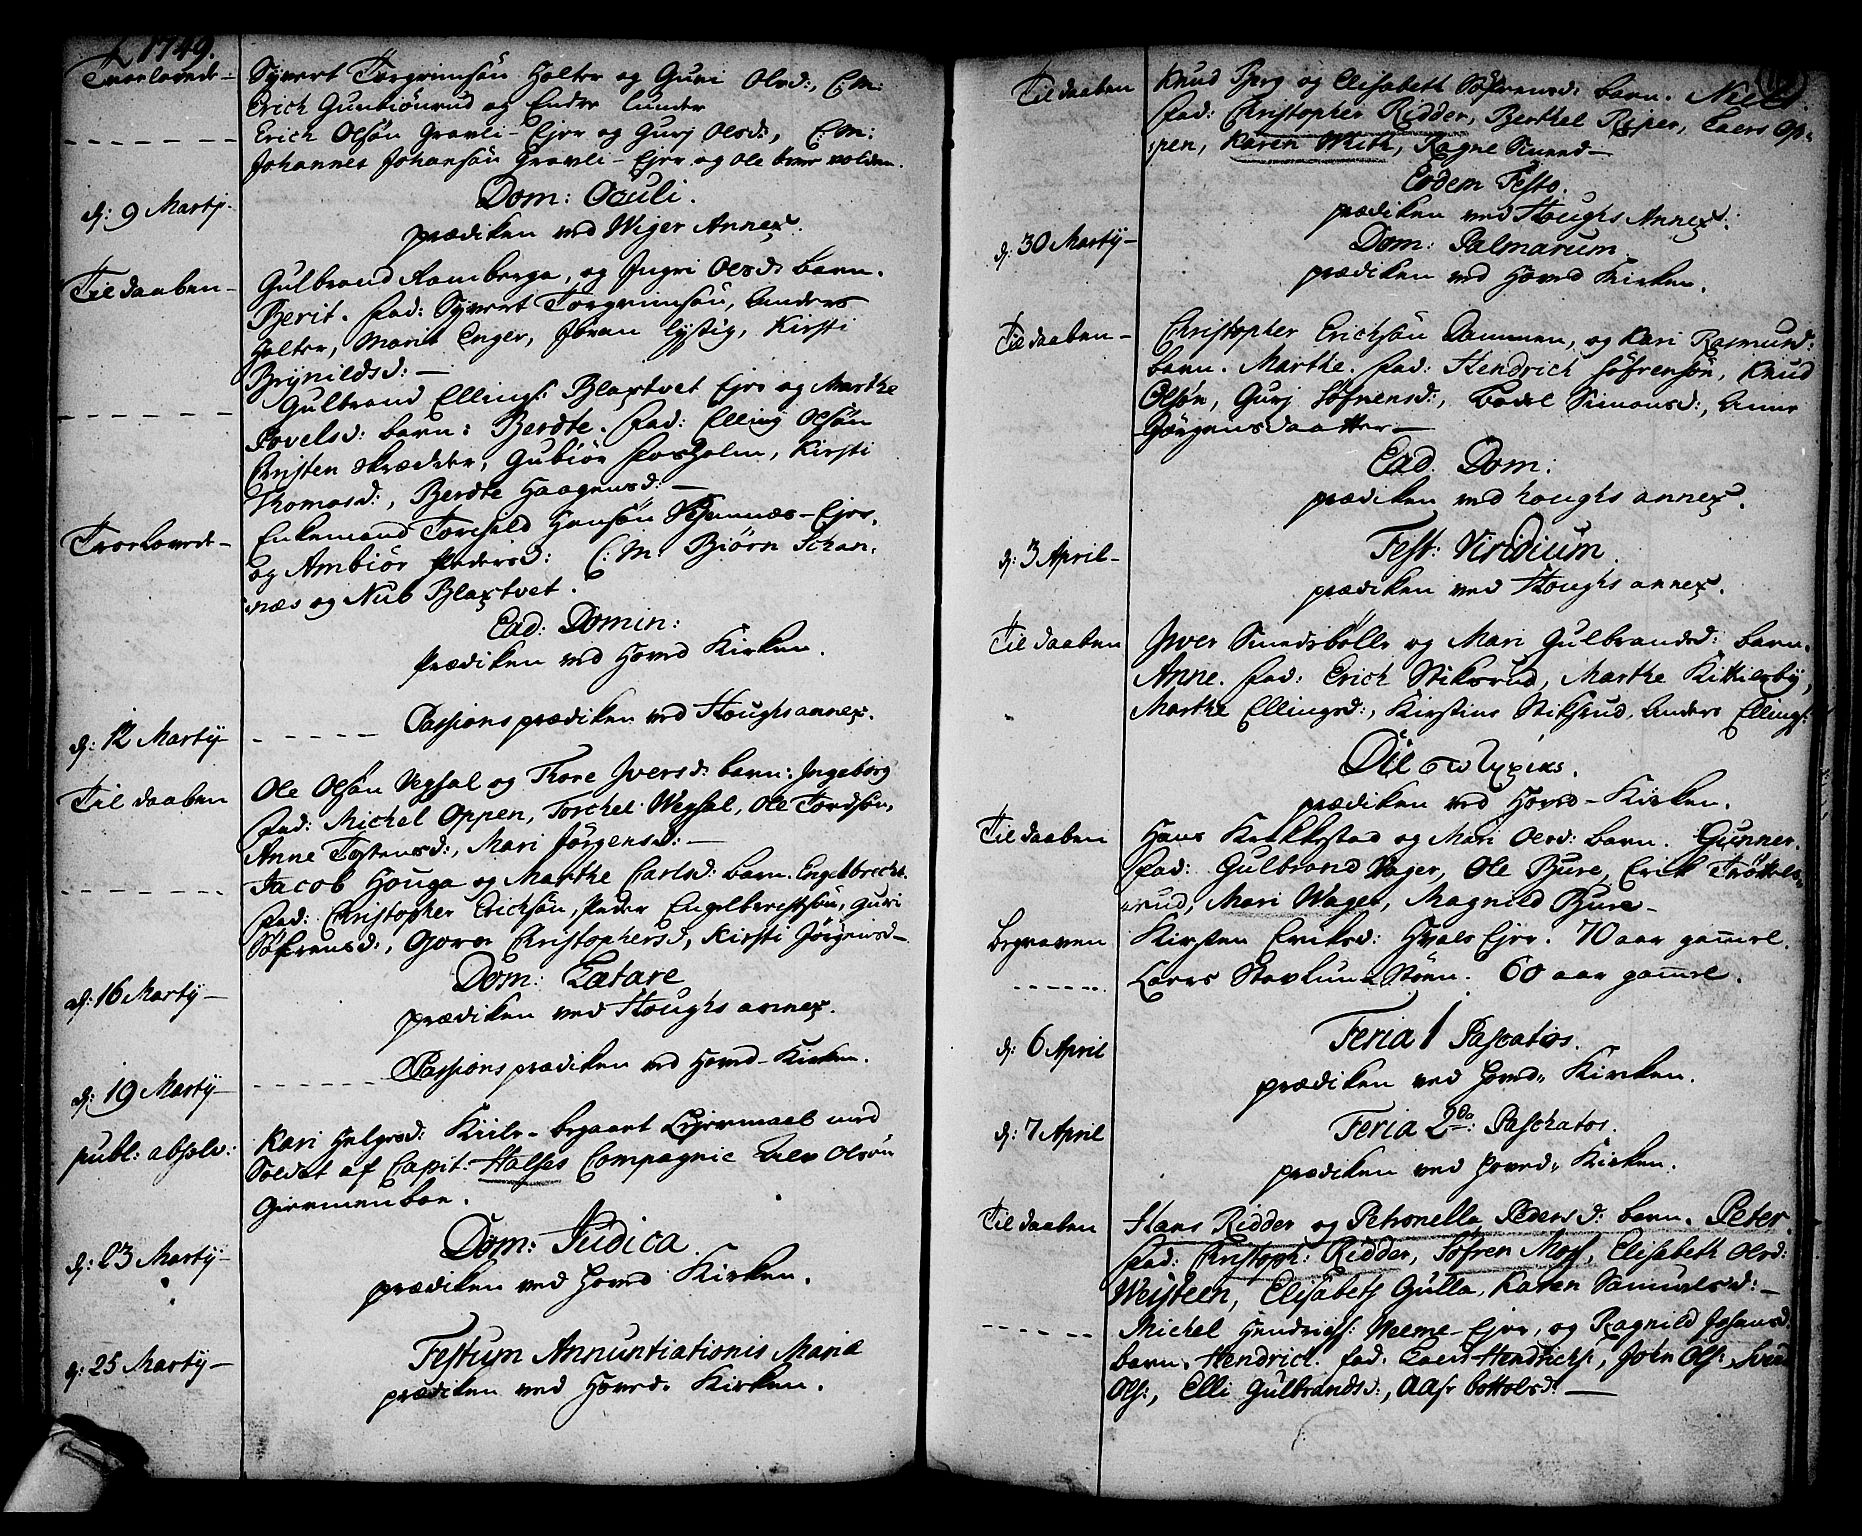 1749.
Troelovede - Syvert Torgrimsøn Holter og Guri Olsd:, C:M:
Erich Gunbiönrud og Ender Lunder
Erich Olsøn Gravli - Ejer og Gurj Olsd:, C:M:
Johannes Johansøn Gravli - Ejer og Ole
d: 9 Martij. Dom: Oculi.
prædiken ved Wiger Annex.
Til daaben - Gulbrand Ramberga, og Ingri Olsd: barn.
Berit. Fad: Syvert Torgrimsøn, Anders
Holter, Marit Enger, Jöran Lystig, Kirsti
Brynildsd: -
Gulbrand Ellings: Blaxtvet Ejer og Marthe
Povelsd: barn: Berdte. Fad: Elling Olsøn
Christen Skrædder, Gubiör Fosholm, Kirsti
Thomasd:, Berdte Haagensd: -
Troelovede - Enkemand Torchild Hansøn Skjennæs - Ejer,
og Ambiör Pedersd: C:M: Biörn Schan-
næs og Nub Blaxtvet.
Ead: Domin:
Prædiken ved Hoved Kirken.
d: 12 Martij - Passions prædiken ved Houghs annex.
Til daaben Ole Olsøn Vegsal og Thore Iversd: barn: Ingeborg
Fad: Michel Oppen, Torchel Wegsal, Ole Tordsøn,
Anne Tostensd:, Mari Jörgensd: -
Jacob Houga og Marthe Carlsd: barn. Engelbrecht.
Fad: Christopher Erichsøn, Peder Engelbrechtsøn, Guri
Søfrensd:, Gjora Christophersd, Kirsti Jörgensd -
d: 16 Martij - Dom: Lætare
prædiken ved Houghs annex.
d: 19 Martij - Passions prædiken ved Hoved - Kirken.
publ: absolv: Kari Helgesd: Kiile - begaaet Lejermaal med
Soldat af Capit: Halses Compagnie Ole Olsøn
Giermenboe.
d: 23 Martij - Dom: Judica.
prædiken ved Hoved Kirken.
d: 25 Martij - Festum Annuntiationis Mariæ
prædiken ved Hoved. Kirken.
Til daaben Knud Berg og Elisabeth Søfrensd: barn. Niels.
Fad: Christopher Ridder, Berthel Riper, Laers Op-
pen, Karen With, Ragne
Eodem Festo.
prædiken ved Houghs Annex:
d: 30 Martij - Dom: Palmarum.
prædiken ved Hoved Kirken.
Til daaben - Christopher Erichsøn Dammen, og Kari Rasmusd:
barn. Marthe. Fad: Hendrich Söfrensön, Knud
Olsøn, Gurj Söfrensd:, Bodel Simonsd:, Anne
Jörgensdaatter -
Ead. Dom:
prædiken ved houghs annex.
d: 3 April - Fest: Viridium.
prædiken ved Houghs annex.
Til daaben Iver Smedsbölle og Mari Gulbrandsd: barn.
Anne. Fad: Erich Stiksrud, Marthe Kittilsby,
Marthe Ellingsd:, Kirstine Stiksrud, Anders Ellings:
prædiken ved Hoved - Kirken.
Til daaben Hans Krekkestad og Mari Olsd: barn. Gunner.
Fad: Gulbrand Wager, Ole Bure, Erik Tröttels-
rud, Mari Wager, Magnild Bure -
Begraven Kirsten Eriksd: Hvals Ejer. 70 aar gamel.
Laers Stavlund Söen. 60 aar gamel.
d: 6 April Feria 1 Pascatos.
prædiken ved Hoved, Kirken.
d: 7 April Feria 2da: Paschatos.
prædiken ved Hoved, Kirken.
Til daaben Hans Ridder og Petronella Pedersd: barn. Peter.
Fad: Christoph: Ridder, Söfren Moss, Elisabeth Olsd:
Weisteen, Elisabeth Gulla, Karen Samuelsd: -
Michel Hendrichs: Weeme - Ejer, og Ragnild Johansd:
barn. Hendrich. Fad. Laers Hendrichs:, John Ols:
Ols:, Elli Gulbrandsd:, Aase Bottolsd -